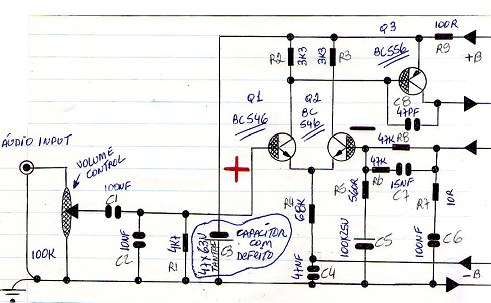 Q3
100R
R9
BC556
+B
R2
3K3
3K3
R3
C8
47PF
Q1
BC546
Q2
BC
546
ÁUDIO INPUT
VOLUME
CONTROL
47K R8
47K
R6
15NF
C7
560R
R5
R7
10R
100NF
C1
R4
68K
100K
10NF
C2
4K7
R1
47X63V
TANTOF
C3
CAPACITOR
COM
DEFEITO
100X25V
C5
100NF
C6
47NF
C4
-B